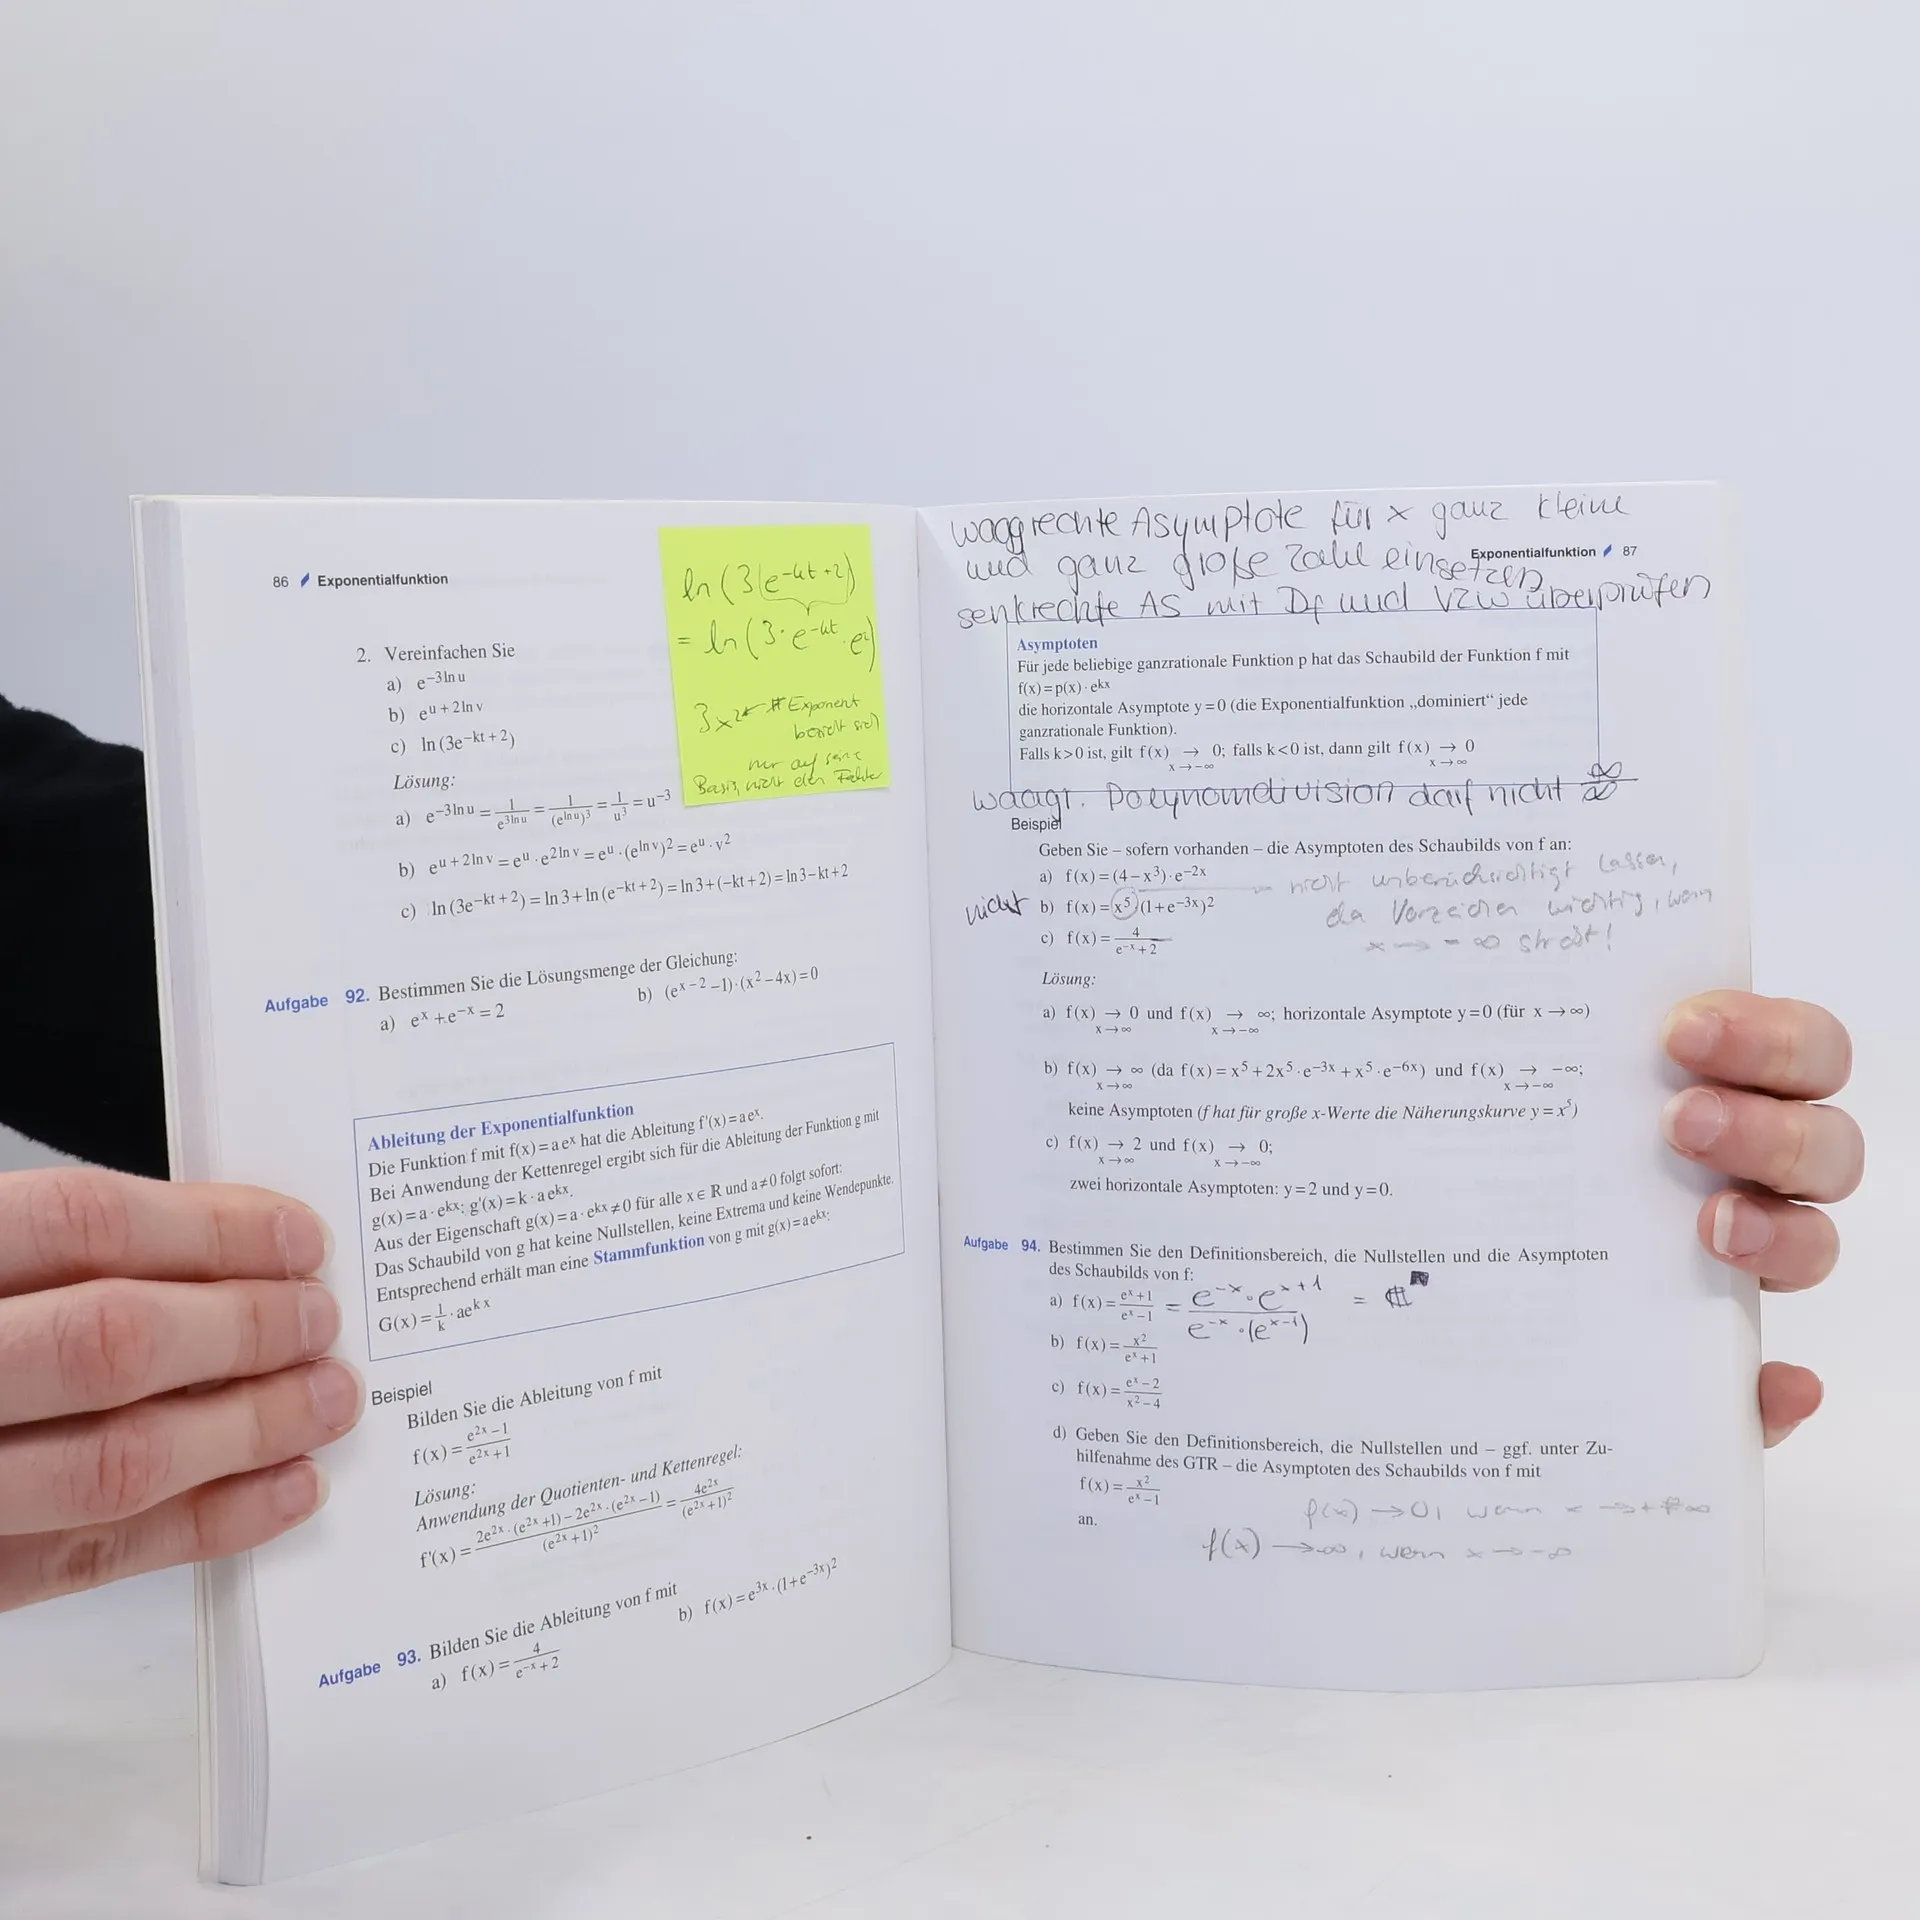 86 Exponentialfunktion
ln (3(e^-kt+2)
= ln (3·e^-kt · e²)
3x² ← # Exponent
bezieht sich
nur auf seine
Basis, nicht den Faktor
2. Vereinfachen Sie
a) e^-3 ln u
b) e^u + 2 ln v
c) ln (3e^-kt + 2)
Lösung:
a) e^-3 ln u = 1/e^3 ln u = 1/(e^ln u)³ = 1/u³ = u^-3
b) e^u + 2 ln v = e^u · e^2 ln v = e^u · (e^ln v)² = e^u · v²
c) ln (3e^-kt + 2) = ln 3 + ln (e^-kt + 2) = ln 3 + (-kt + 2) = ln 3 - kt + 2
Aufgabe 92. Bestimmen Sie die Lösungsmenge der Gleichung:
a) e^x + e^-x = 2 b) (e^x - 2 - 1) · (x² - 4x) = 0
Ableitung der Exponentialfunktion
Die Funktion f mit f(x) = a e^x hat die Ableitung f'(x) = a e^x.
Bei Anwendung der Kettenregel ergibt sich für die Ableitung der Funktion g mit
g(x) = a · e^kx: g'(x) = k · a e^kx.
Aus der Eigenschaft g(x) = a · e^kx ≠ 0 für alle x ∈ ℝ und a ≠ 0 folgt sofort:
Das Schaubild von g hat keine Nullstellen, keine Extrema und keine Wendepunkte.
Entsprechend erhält man eine Stammfunktion von g mit g(x) = a e^kx:
G(x) = 1/k · ae^k x
Beispiel
Bilden Sie die Ableitung von f mit
f(x) = (e^2x - 1)/(e^2x + 1)
Lösung:
Anwendung der Quotienten- und Kettenregel:
f'(x) = (2e^2x · (e^2x + 1) - 2e^2x · (e^2x - 1))/(e^2x + 1)² = 4e^2x/(e^2x + 1)²
Aufgabe 93. Bilden Sie die Ableitung von f mit
a) f(x) = 4/(e^-x + 2) b) f(x) = e^3x · (1 + e^-3x)²
waagrechte Asymptote für x ganz kleine
und ganz große Zahl einsetzen
Exponentialfunktion 87
senkrechte AS mit Df und VZW überprüfen
Asymptoten
Für jede beliebige ganzrationale Funktion p hat das Schaubild der Funktion f mit
f(x) = p(x) · e^kx
die horizontale Asymptote y = 0 (die Exponentialfunktion „dominiert“ jede
ganzrationale Funktion).
Falls k > 0 ist, gilt f(x) → 0; falls k < 0 ist, dann gilt f(x) → 0
x → -∞ x → ∞
waagr. Polynomdivision darf nicht ∞
Beispiel
Geben Sie – sofern vorhanden – die Asymptoten des Schaubilds von f an:
a) f(x) = (4 - x³) · e^-2x
nicht unberücksichtigt lassen,
nicht b) f(x) = x⁵ (1 + e^-3x)²
da Vorzeichen wichtig, wenn
c) f(x) = 4/(e^-x + 2)
x → -∞ strebt!
Lösung:
a) f(x) → 0 und f(x) → ∞; horizontale Asymptote y = 0 (für x → ∞)
x → ∞ x → -∞
b) f(x) → ∞ (da f(x) = x⁵ + 2x⁵ · e^-3x + x⁵ · e^-6x) und f(x) → -∞;
x → ∞ x → -∞
keine Asymptoten (f hat für große x-Werte die Näherungskurve y = x⁵)
c) f(x) → 2 und f(x) → 0;
x → ∞ x → -∞
zwei horizontale Asymptoten: y = 2 und y = 0.
Aufgabe 94. Bestimmen Sie den Definitionsbereich, die Nullstellen und die Asymptoten
des Schaubilds von f:
a) f(x) = (e^x + 1)/(e^x - 1) = e^-x · e^x+1 / e^-x · (e^x-1) =
b) f(x) = x²/(e^x + 1)
c) f(x) = (e^x - 2)/(x² - 4)
d) Geben Sie den Definitionsbereich, die Nullstellen und – ggf. unter Zu-
hilfenahme des GTR – die Asymptoten des Schaubilds von f mit
f(x) = x²/(e^x - 1)
an.
f(x) → 0, wenn x → + ∞
f(x) → -∞, wenn x → -∞